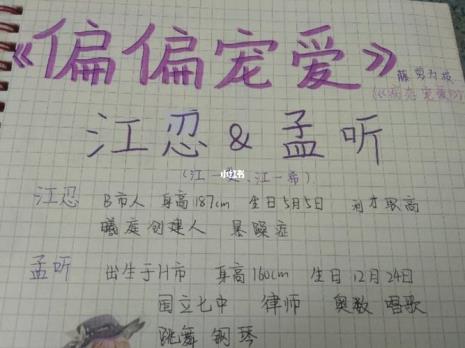 《偏偏宠爱》藤萝为枝
江忍&孟听
小红书
江忍 B市人 身高187cm 生日5月5日 利才职高
曦庭创建人 暴躁症
孟听 出生于H市 身高160cm 生日12月24日
国立七中 律师 奥数 唱歌
跳舞 钢琴